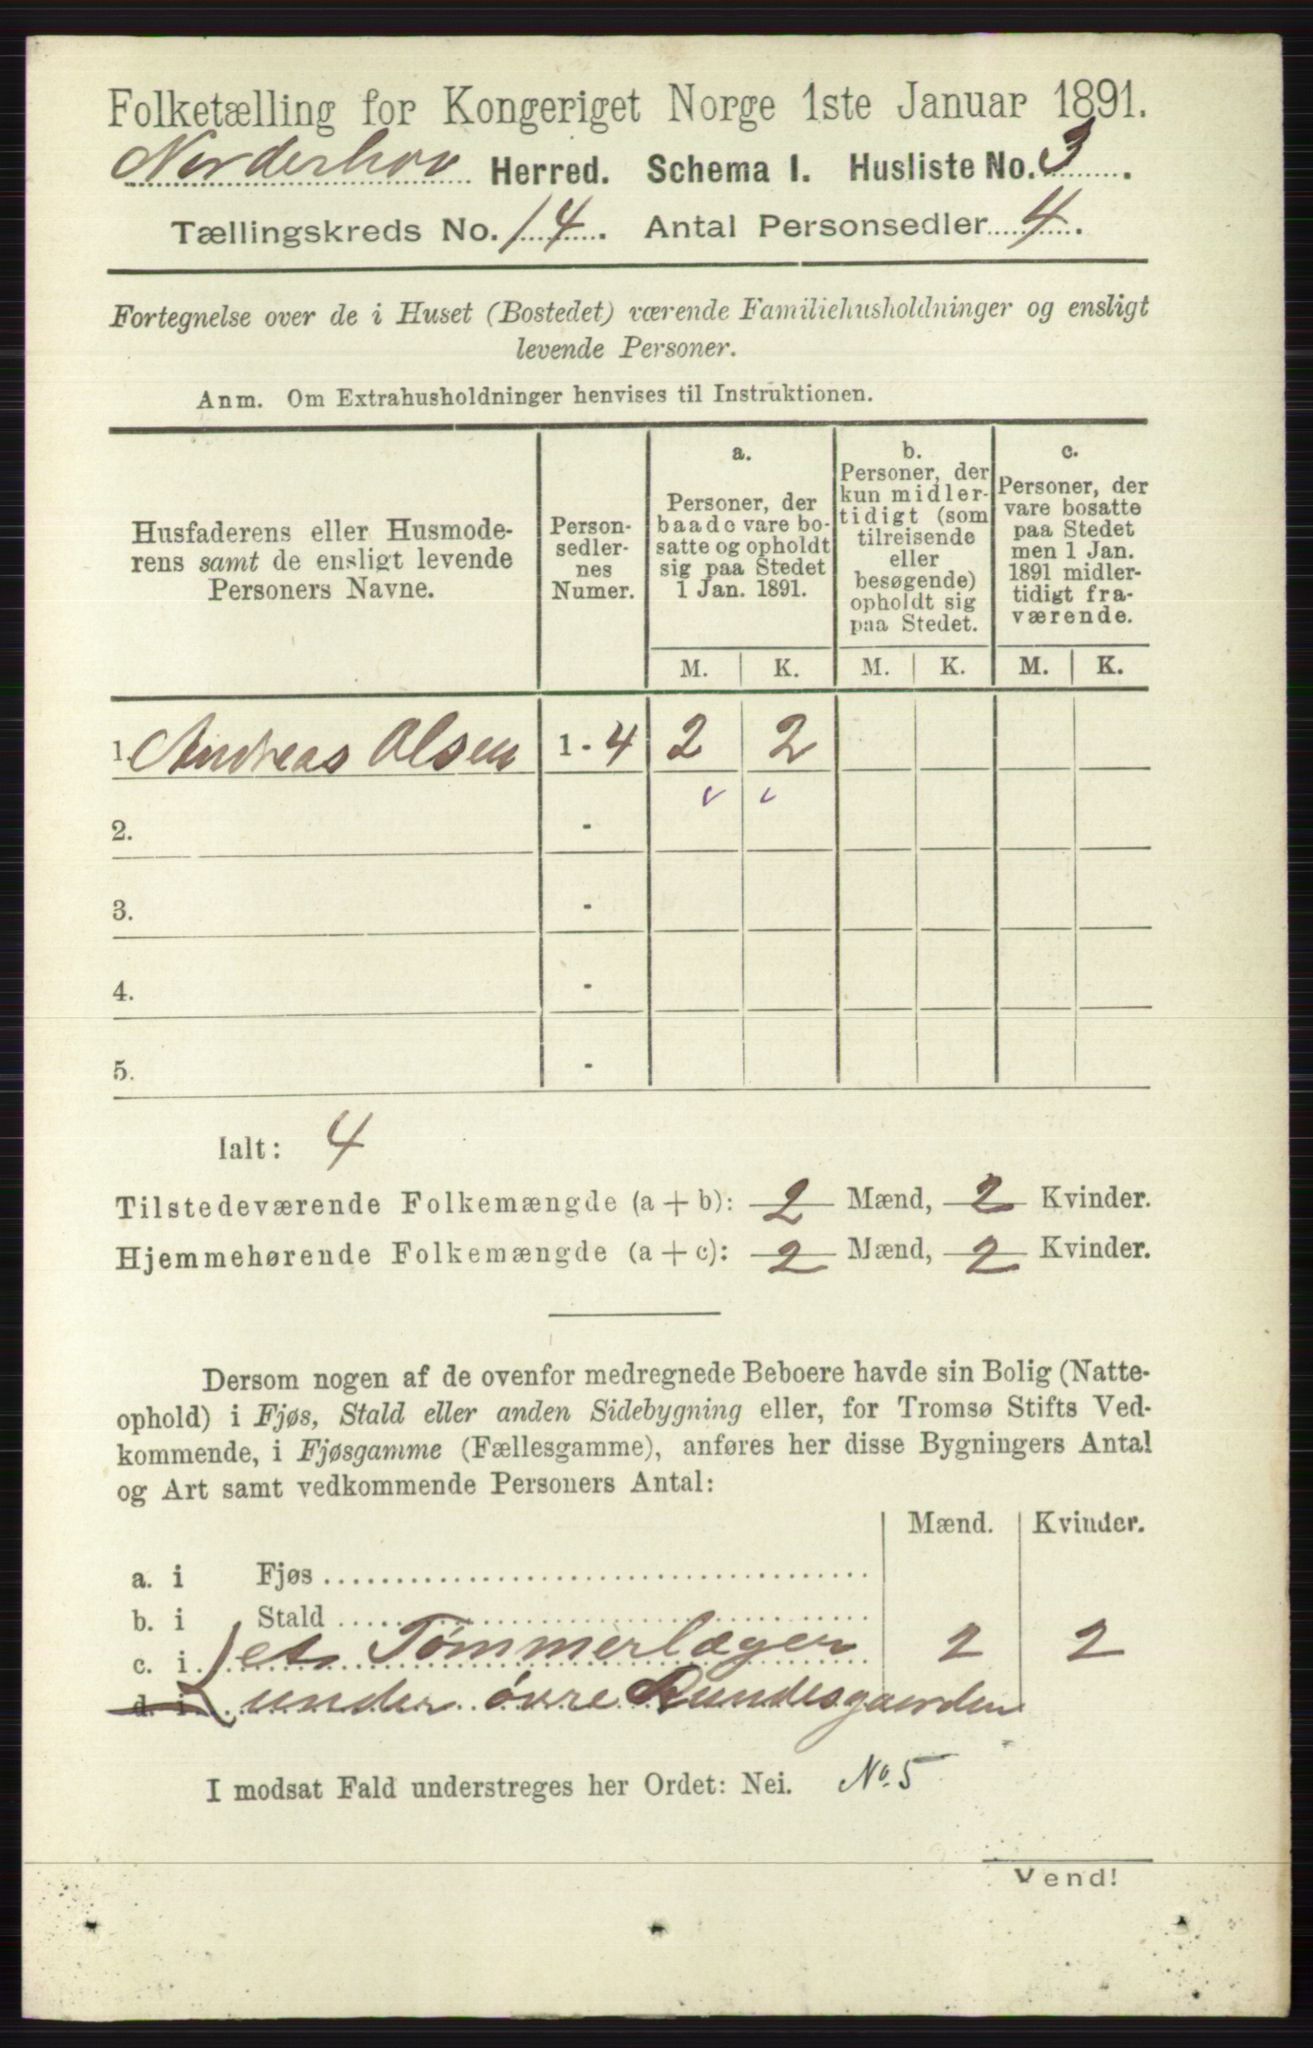 Folketælling for Kongeriget Norge 1ste Januar 1891.
Norderhov Herred. Schema I. Husliste No. 3.
Tællingskreds No. 14. Antal Personsedler 4.
Fortegnelse over de i Huset (Bostedet) værende Familiehusholdninger og ensligt
levende Personer.
Anm. Om Extrahusholdninger henvises til Instruktionen.
Husfaderens eller Husmode-
rens samt de ensligt levende
Personers Navne.
Person-
sedler-
nes
Numer.
a.
Personer, der
baade vare bo-
satte og opholdt
sig paa Stedet
1 Jan. 1891.
b.
Personer, der
kun midler-
tidigt (som
tilreisende
eller
besøgende)
opholdt sig
paa Stedet.
c.
Personer, der
vare bosatte
paa Stedet
men 1 Jan.
1891 midler-
tidigt fra-
værende.
M. K. M. K. M. K.
1. Andreas Olsen 1 - 4 2 2
2. -
3. -
4. -
5. -
Ialt: 4
Tilstedeværende Folkemængde (a + b): 2 Mænd, 2 Kvinder.
Hjemmehørende Folkemængde (a + c): 2 Mænd, 2 Kvinder.
Dersom nogen af de ovenfor medregnede Beboere havde sin Bolig (Natte-
ophold) i Fjøs, Stald eller anden Sidebygning eller, for Tromsø Stifts Ved-
kommende, i Fjøsgamme (Fællesgamme), anføres her disse Bygningers Antal
og Art samt vedkommende Personers Antal:
Mænd. Kvinder.
a. i Fjøs
b. i Stald
c. i et Tømmerlæger 2 2
d. i under øvre Rundesgaarden
I modsat Fald understreges her Ordet: Nei. No. 5
Vend!